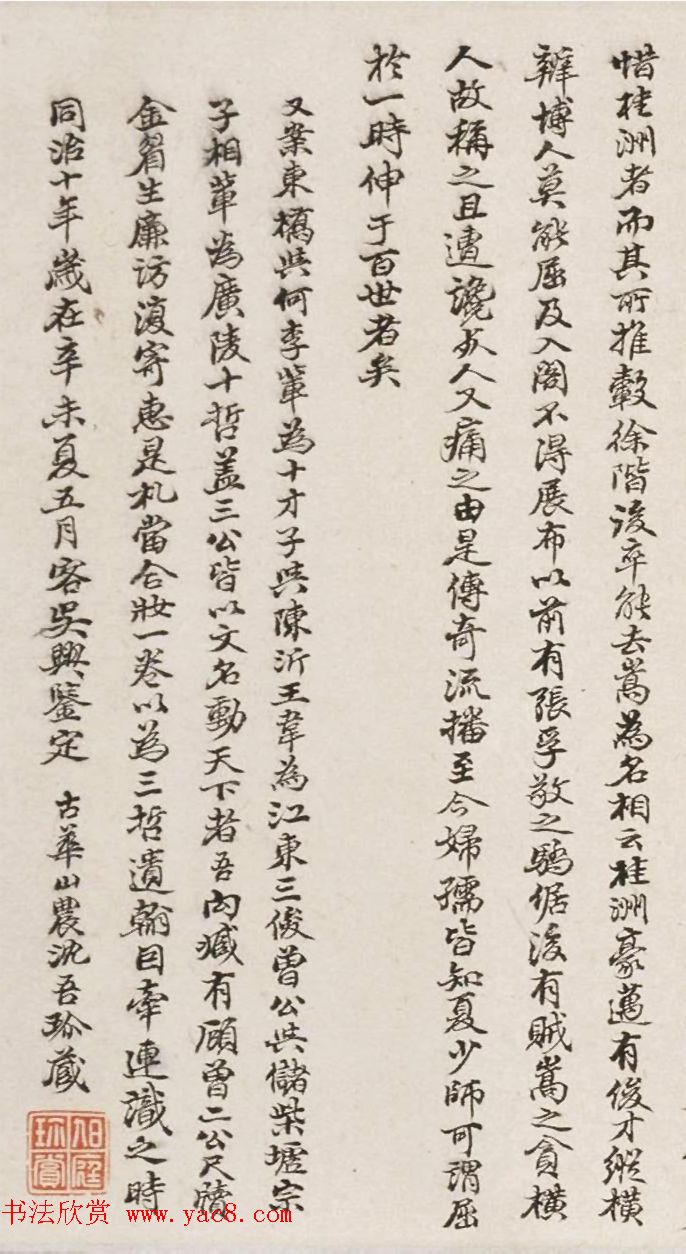 惜桂洲者而其所推轂徐階後卒能去嵩為名相云桂洲豪邁有俊才縱橫
辯博人莫能屈及入閣不得展布以前有張孚敬之驕倨後有賊嵩之貪橫
人故稱之且遭讒以人又痛之由是傳奇流播至今婦孺皆知夏少師可謂屈
於一時伸于百世者矣
又案東橋與何李輩為十才子與陳沂王韋為江東三俊曾公與儲柴墟宗
子相輩為廣陵十哲蓋三公皆以文名動天下者吾內臧有顧曾二公尺牘
金眉生廉訪復寄惠是札當合妝一卷以為三哲遺翰目牽連識之時
同治十年歲在辛未夏五月客吳興鑒定 古華山農沈吾珍藏
旭庭珍賞
书法欣赏 www.yac8.com